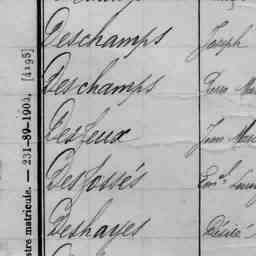 Deschamps Joseph
Deschamps Pierre
Desfeux Jean
Desfossés
Deshayes Désiré
ntre matricule. — 231-89-1903. [4195]